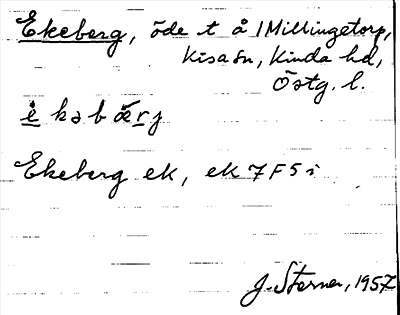 Ekeberg, öde t å 1 Millingetorp,
Kisa sn, Kinda hd,
Östg. l.
è kəbærj
Ekeberg ek, ek 7F5i
J. Sterner, 1957